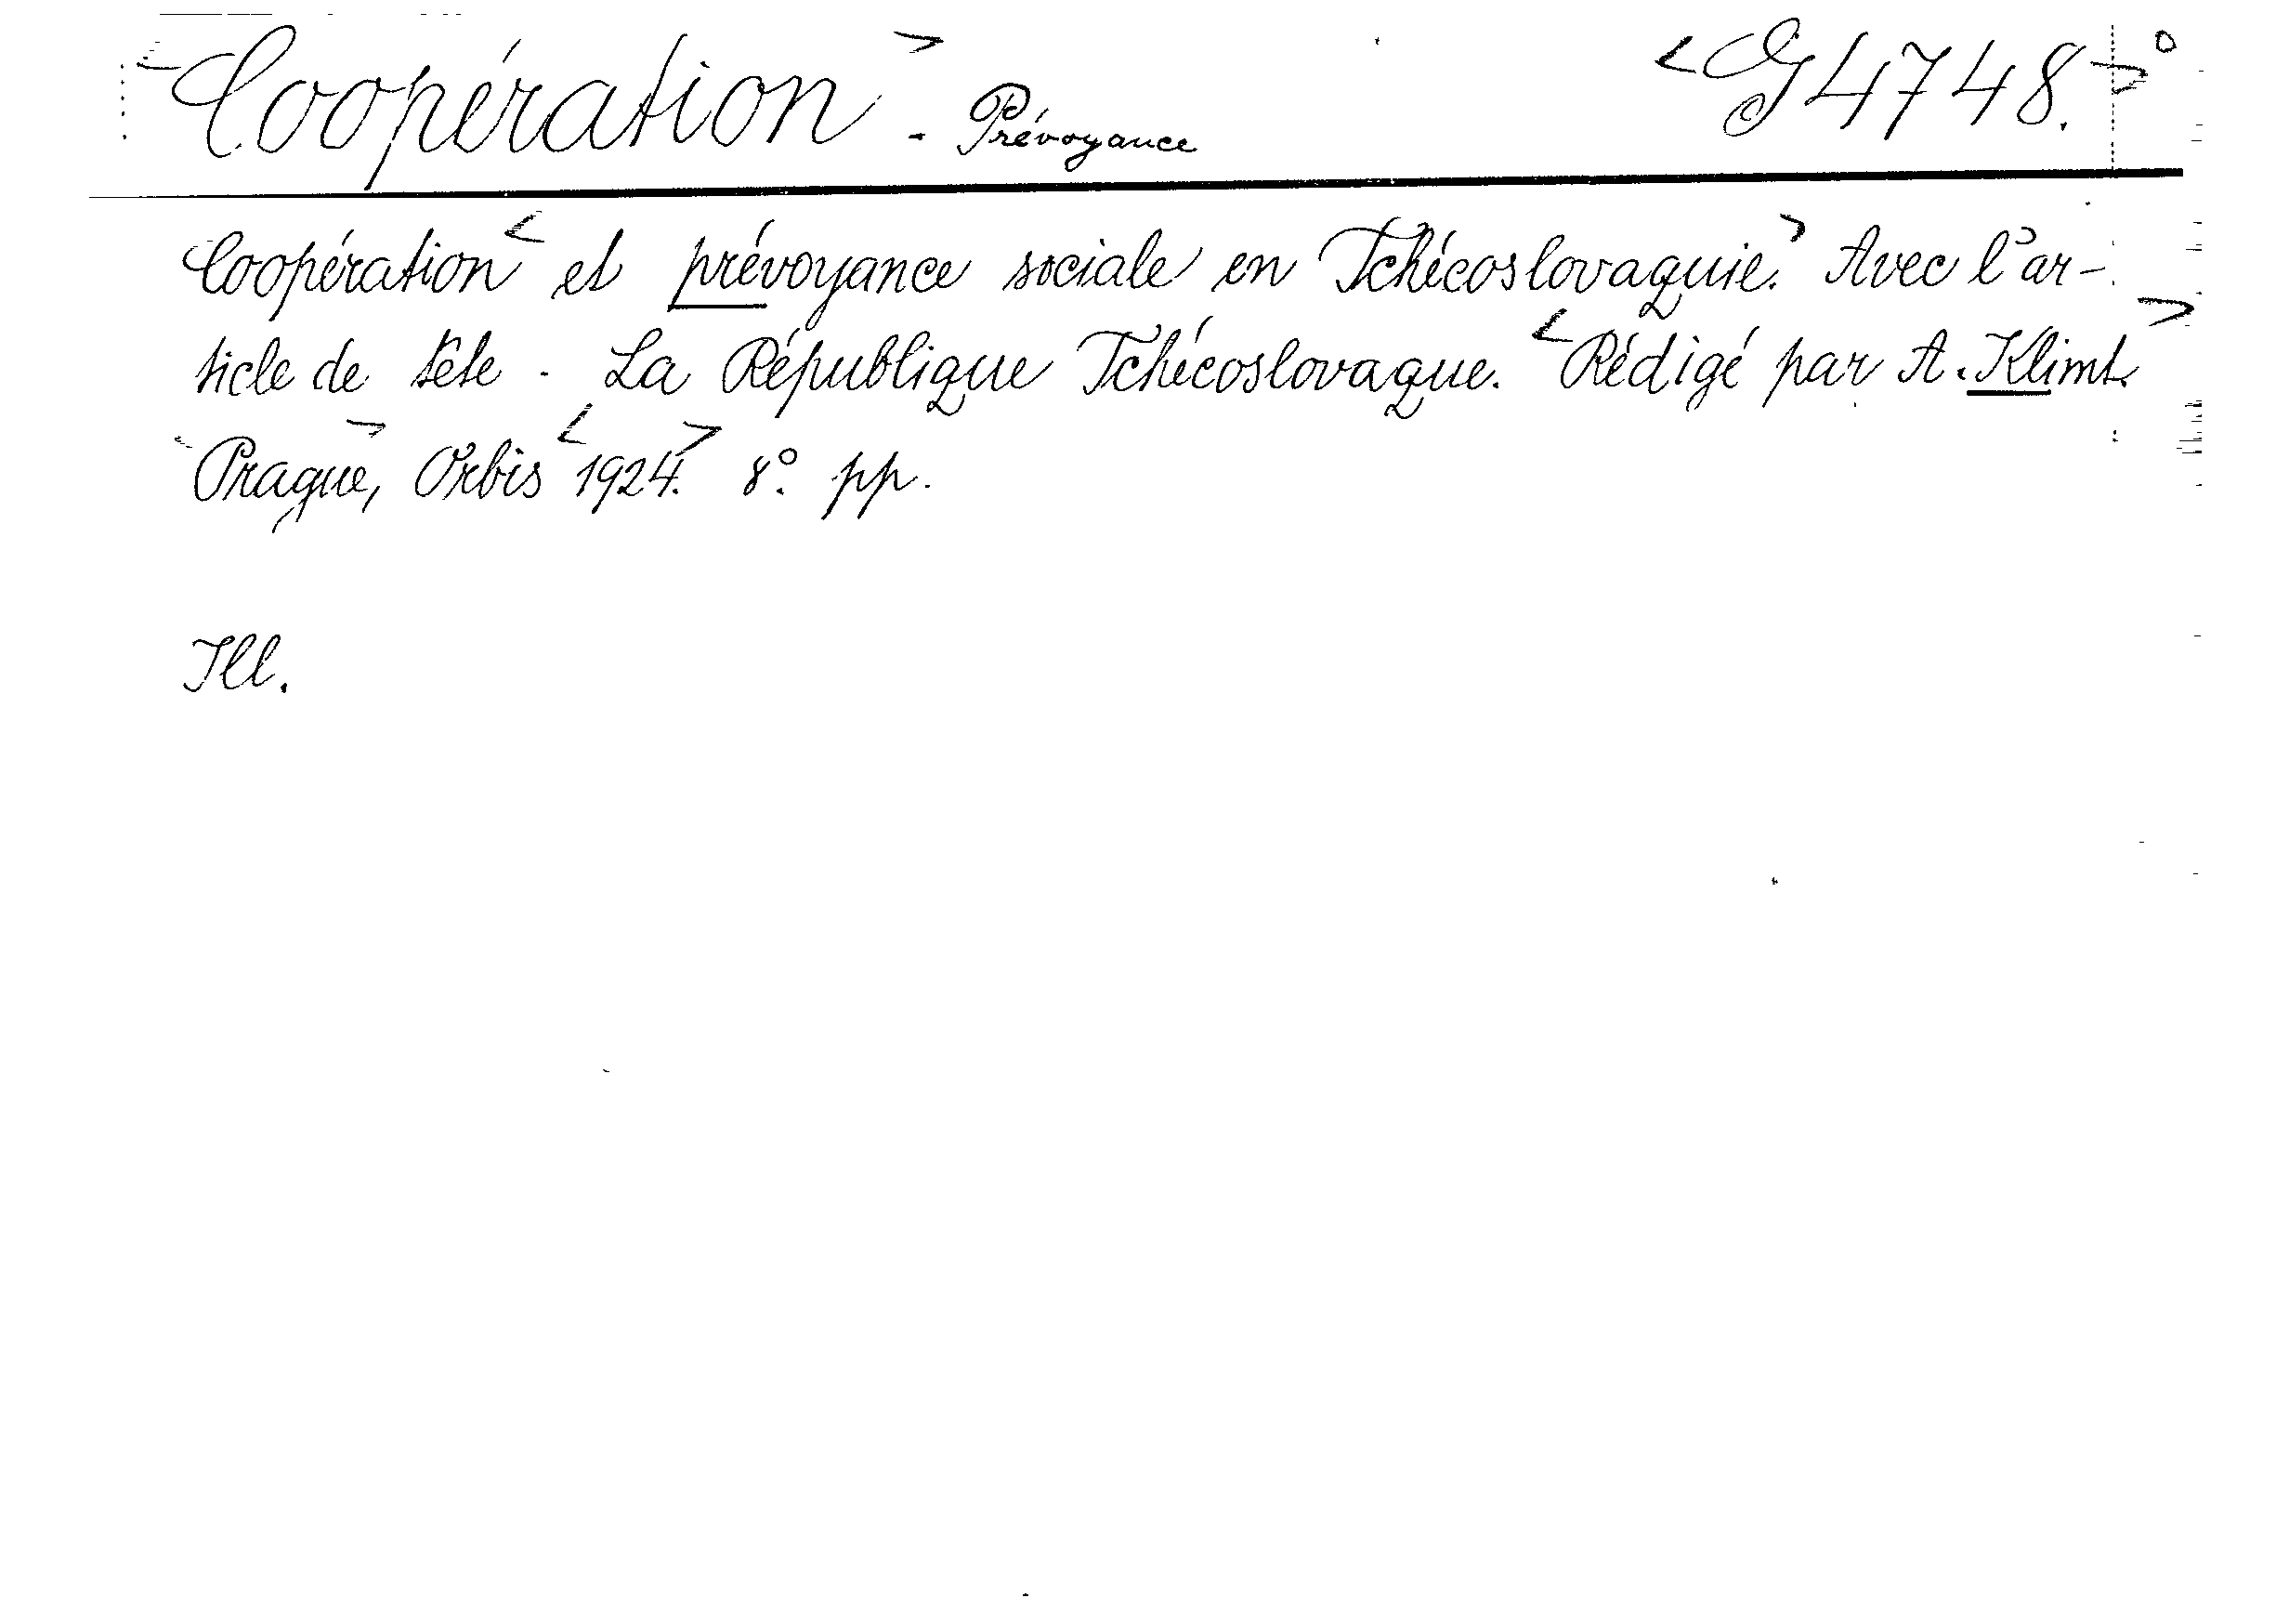 Coopération - Prévoyance <G 4748.>°
Coopération < et prévoyance sociale en Tchécoslovaquie.> Avec l'ar-
ticle de tête - La République Tchécoslovaque. <Rédigé par A. Klimt.>
<Prague,> Orbis <1924.> 8° pp.
Ill.